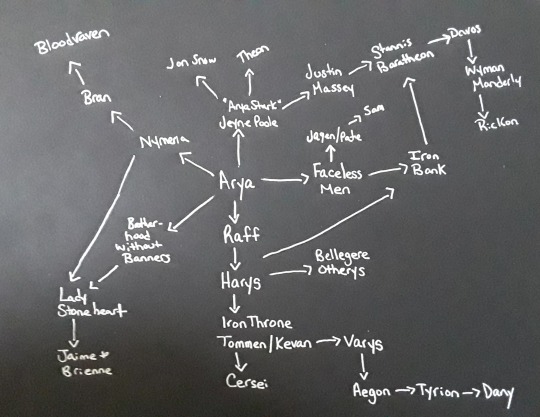 Bloodraven
Jon Snow
Theon
Davos
Stannis
Baratheon
Justin
Massey
Wyman
Manderly
Rickon
Bran
"Arya Stark"
Jeyne Poole
Sam
Jaqen/Pate
Nymeria
Arya
Faceless
Men
Iron
Bank
Brother-
hood
without
Banners
Raff
Harys
Bellegere
Otherys
Lady
Stoneheart
Iron Throne
Tommen/Kevan
Varys
Jaime +
Brienne
Cersei
Aegon
Tyrion
Dany